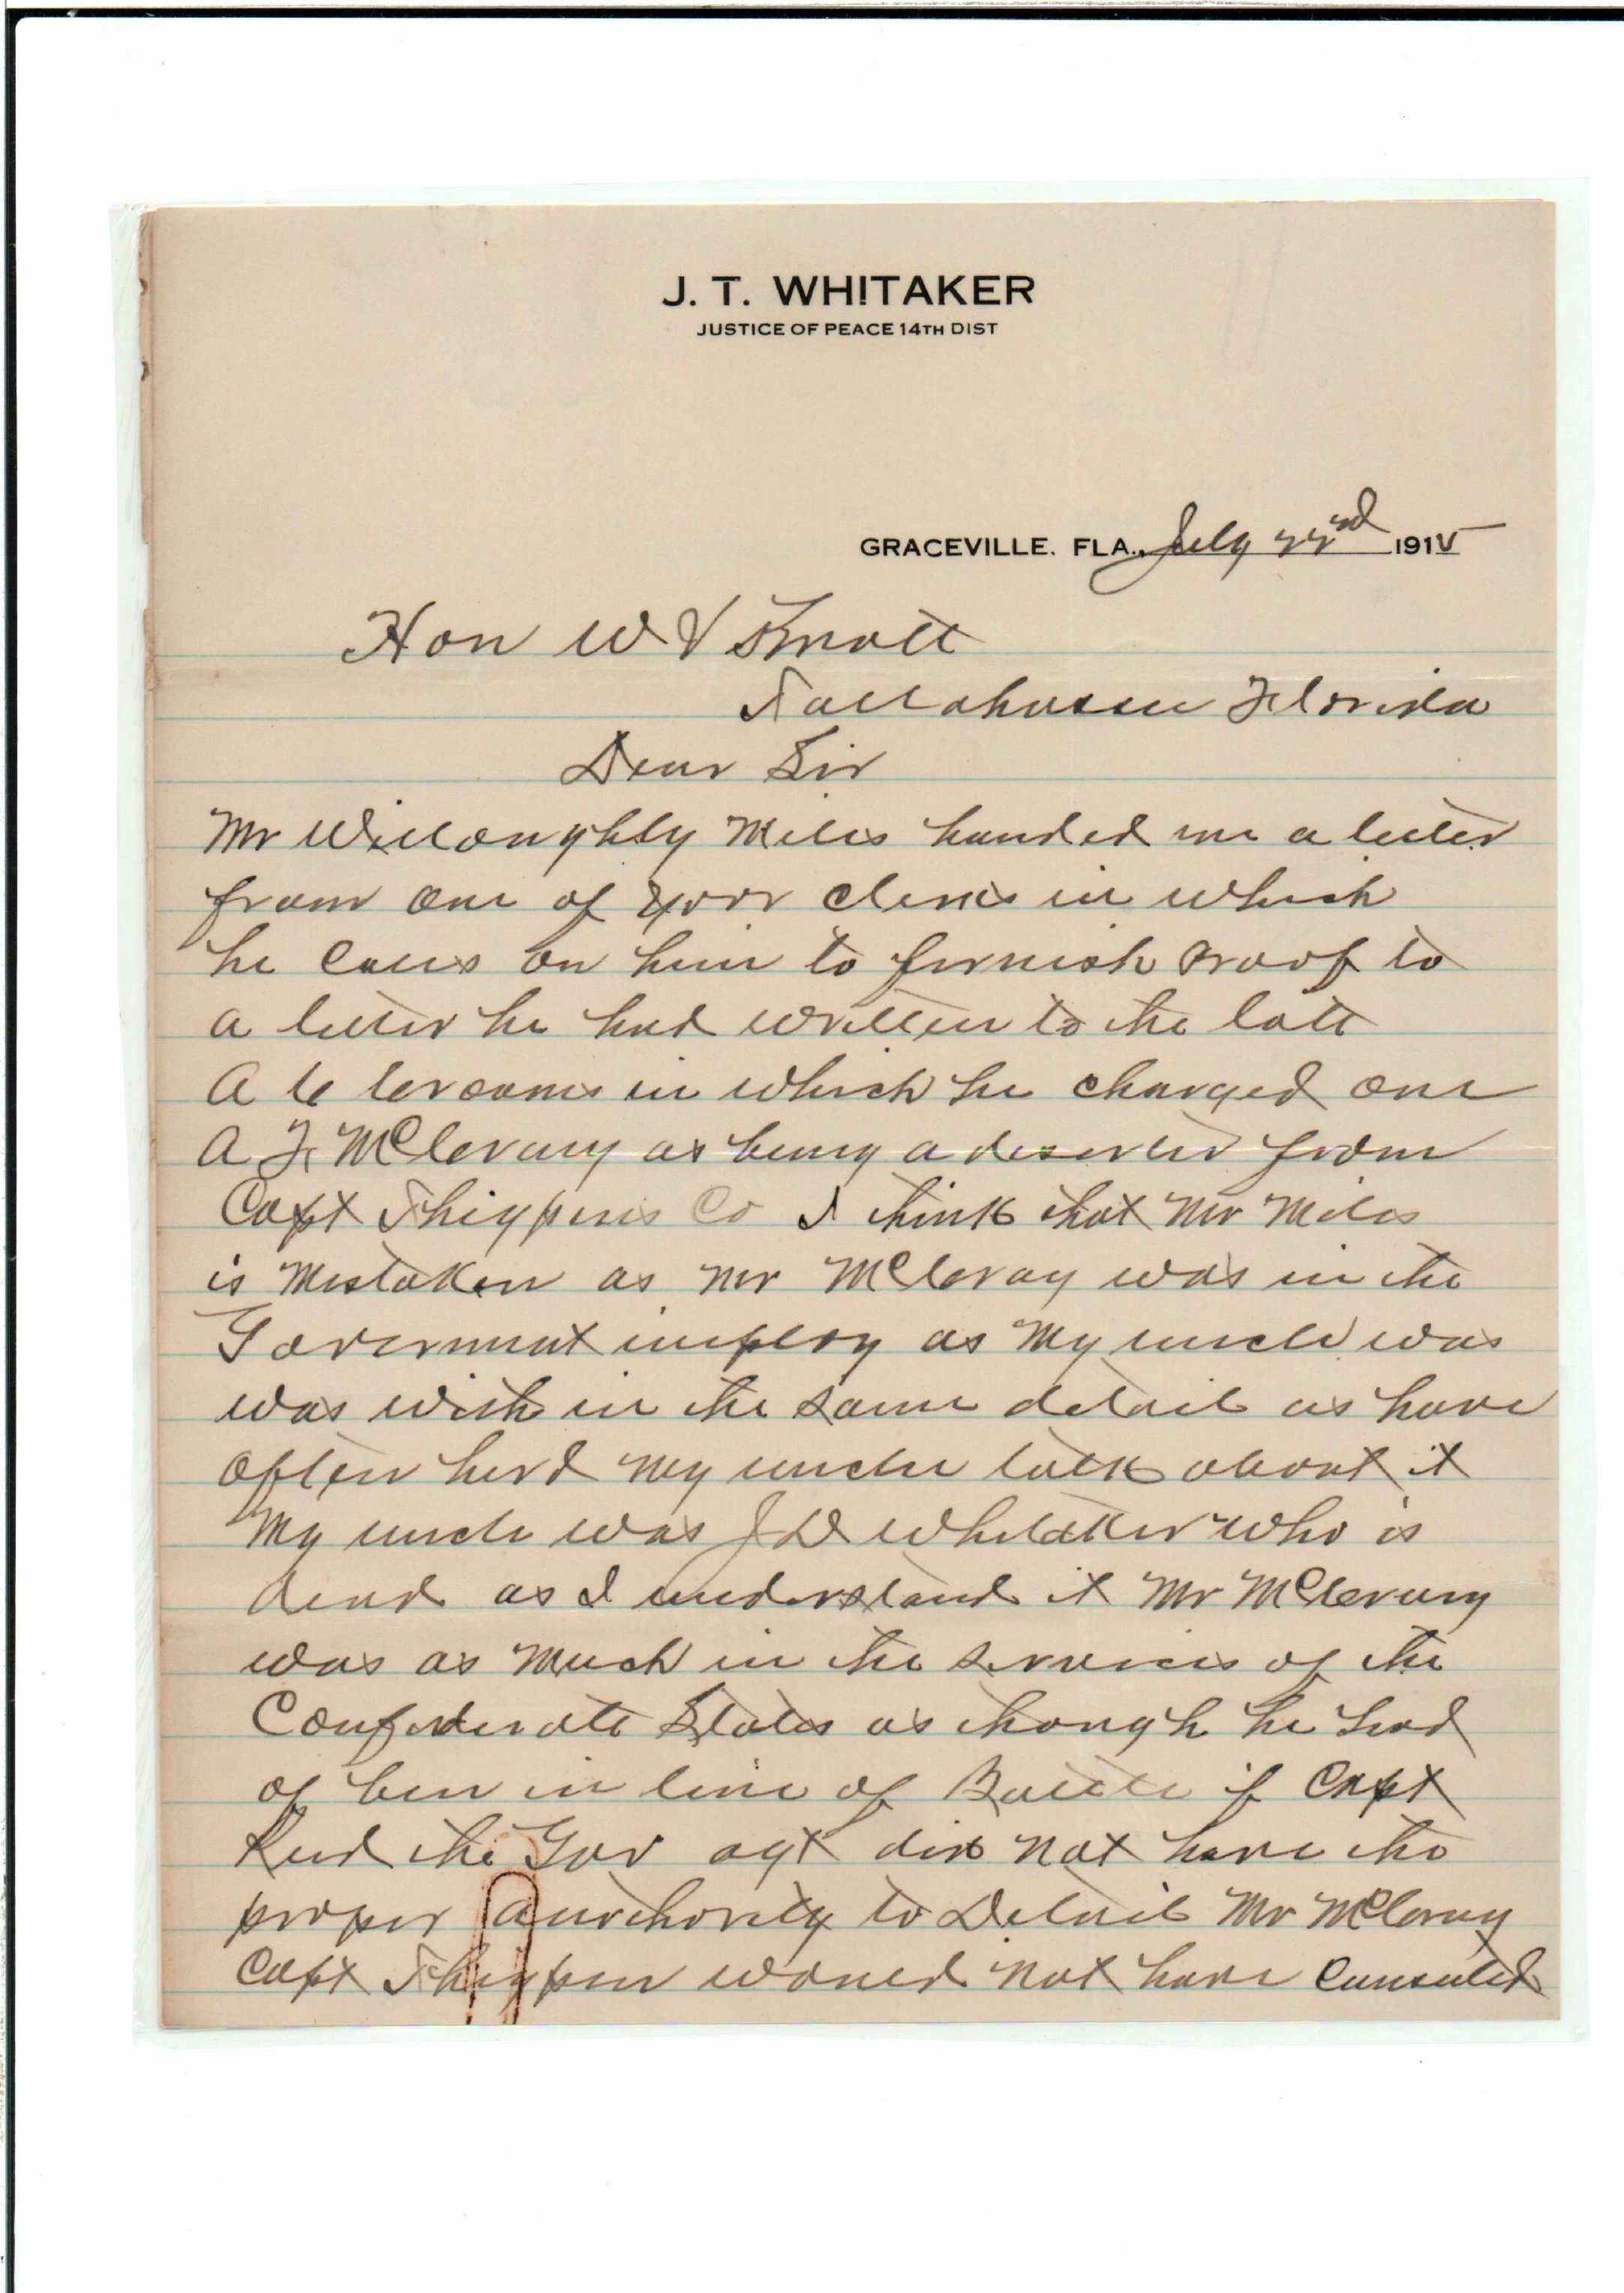 J. T. WHITAKER
JUSTICE OF PEACE 14TH DIST
GRACEVILLE. FLA., July 22nd 1915
Hon W V Knott
Tallahassee Florida
Dear Sir
Mr Willoughby Miles handed me a letter
from one of your clerks in which
he calls on him to furnish proof to
a letter he had written to the late
A C Croom in which he charged one
A F McCrary as being a deserter from
Capt Skippers Co I think that Mr Miles
is Mistaken as Mr McCrary was in the
Goverment imploy as My uncle was
was with in the same detail as have
often herd my uncle talk about it
My uncle was J D Whitaker who is
dead as I understand it Mr McCrary
was as Much in the services of the
Confederate States as though he had
of ben in line of Battle if Capt
the Gov agt did not have the
proper aurthority to Detail Mr McCrary
Capt Skipper would not have Consented